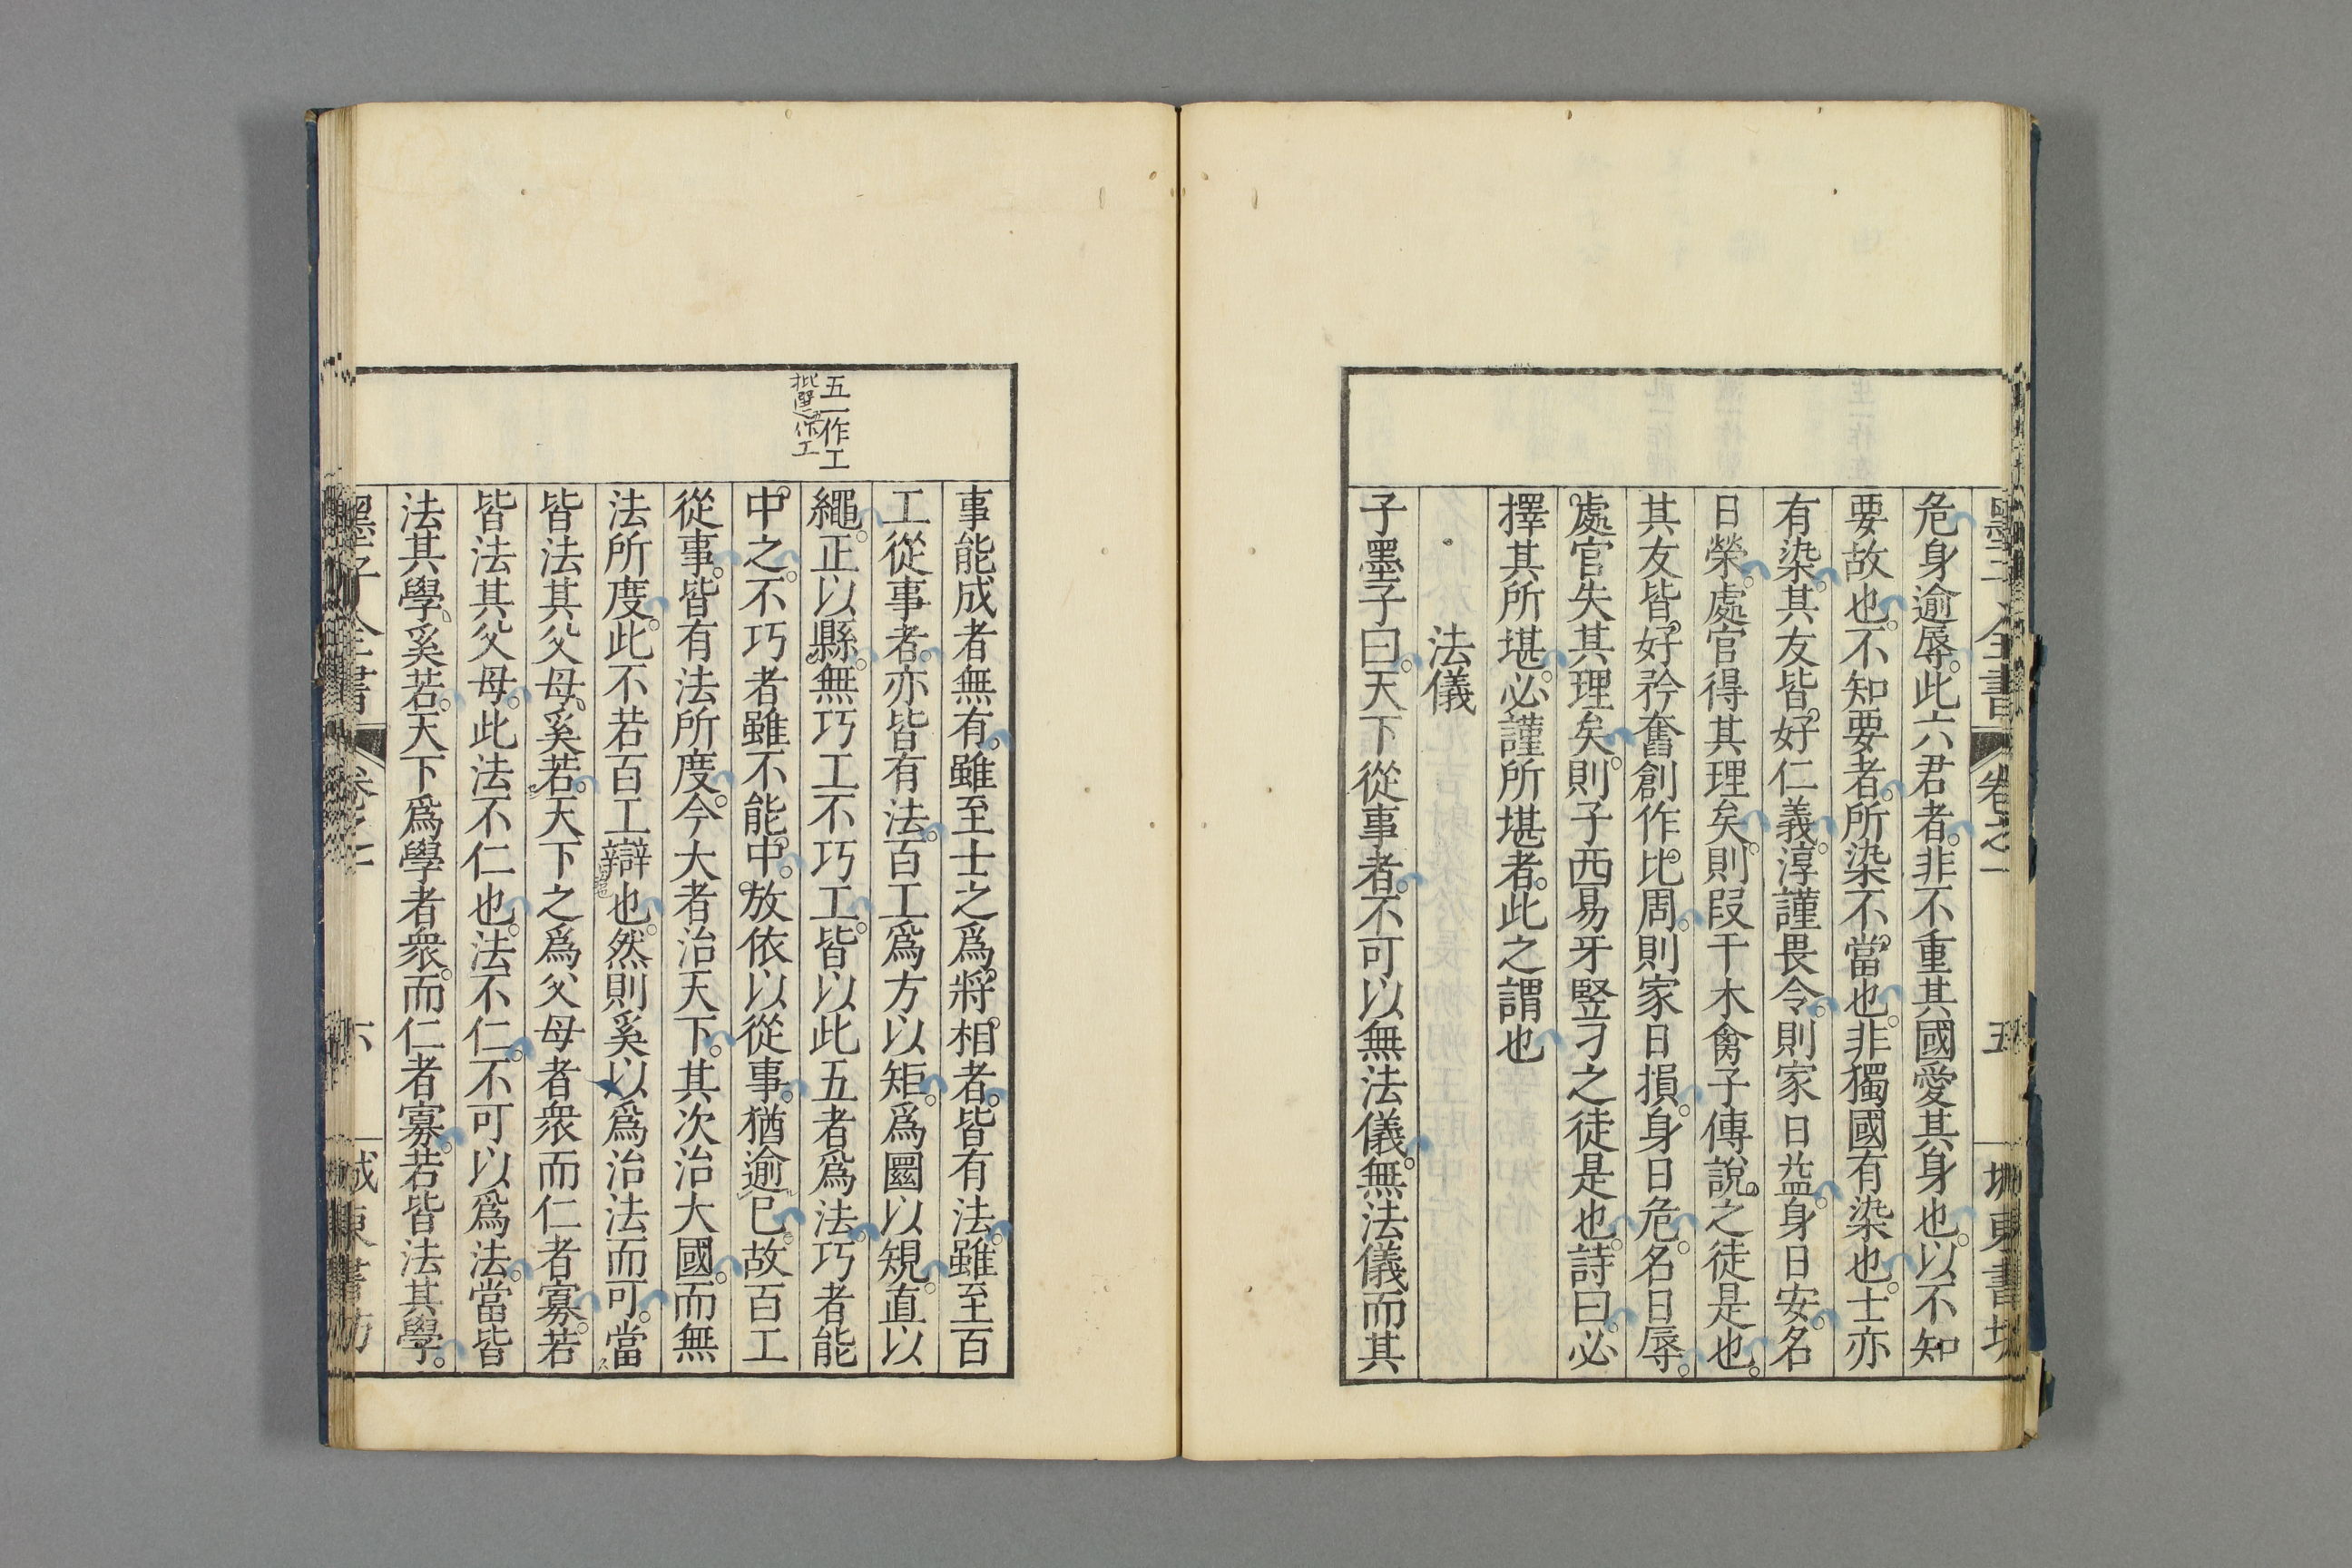 墨子全書 卷之一 五 堀東書坊
危身逾辱。此六君者。非不重其國愛其身也。以不知
要故也。不知要者。所染不當也。非獨國有染也。士亦
有染。其友皆好仁義。淳謹畏令。則家日益。身日安。名
日榮。處官得其理矣。則段干木禽子傅說之徒是也。
其友皆好矜奮創作比周。則家日損。身日危。名日辱。
處官失其理矣。則子西易牙竪刁之徒是也。詩曰。必
擇其所堪。必謹所堪者。此之謂也
法儀
子墨子曰。天下從事者。不可以無法儀。無法儀而其
事能成者無有。雖至士之爲將相者。皆有法。雖至百
工從事者。亦皆有法。百工爲方以矩。爲圓以規。直以
繩。正以縣。無巧工不巧工。皆以此五者爲法。巧者能
五一作工
中之。不巧者雖不能中。放依以從事。猶逾已。故百工
從事。皆有法所度。今大者治天下。其次治大國。而無
法所度。此不若百工辯也。然則奚以爲治法而可。當
皆法其父母。奚若。天下之爲父母者衆而仁者寡。若
皆法其父母。此法不仁也。法不仁。不可以爲法。當皆
法其學。奚若。天下爲學者衆。而仁者寡。若皆法其學。
墨子全書